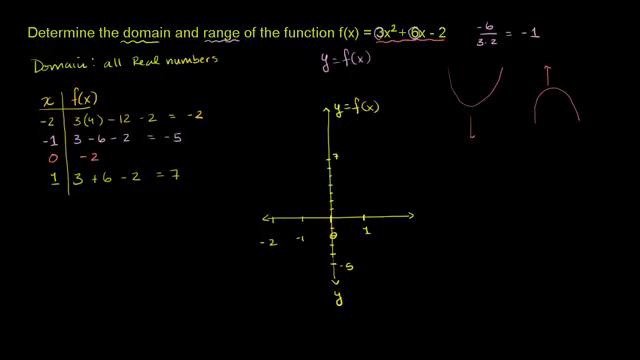 Determine the domain and range of the function f(x) = 3x² + 6x - 2
-6 / 3·2 = -1
Domain: all Real numbers
y = f(x)
x f(x)
-2 3(4) - 12 - 2 = -2
-1 3 - 6 - 2 = -5
0 -2
1 3 + 6 - 2 = 7
y = f(x)
7
-2 -1 0 1
-5
y